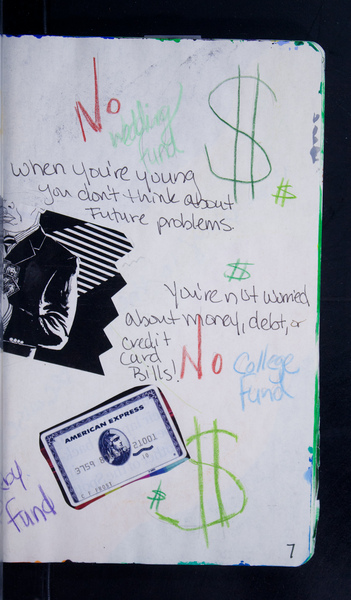 No
wedding
fund
$
When you're young
you don't think about
Future problems.
$
$
You're not worried
about money, debt, or
credit
Card
Bills!
No
College
fund
AMERICAN EXPRESS
3759 8
21001
$
$
fund
7